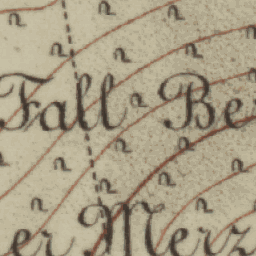 Fall Be
er Merz